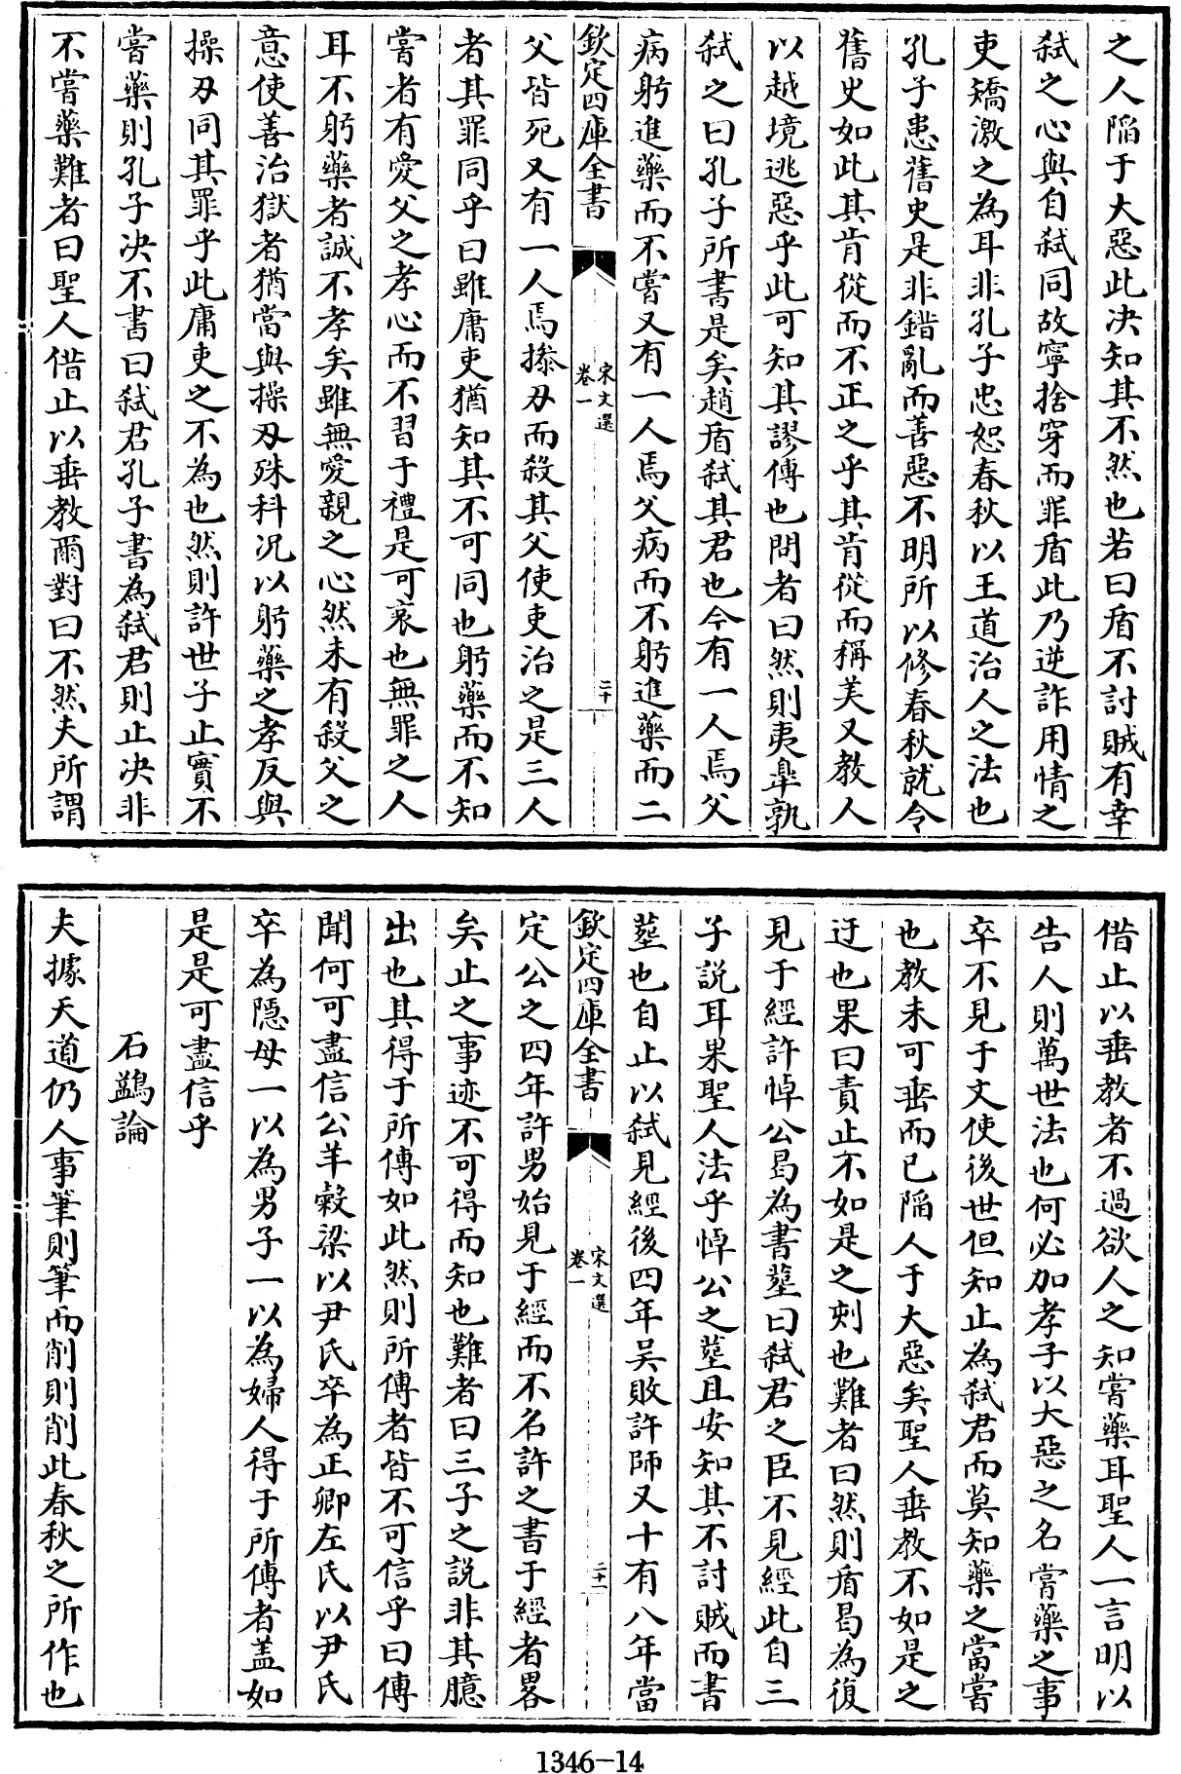 之人陥于大惡此决知其不然也若曰盾不討賊有幸
弑之心與自弑同故寜捨穿而罪盾此乃逆詐用情之
吏矯激之為耳非孔子忠恕春秋以王道治人之法也
孔子患舊史是非錯亂而善惡不明所以修春秋就令
舊史如此其肯從而不正之乎其肯從而稱美又教人
以越境逃惡乎此可知其謬傳也問者曰然則夷臯孰
弑之曰孔子所書是矣趙盾弑其君也今有一人焉父
病躬進藥而不嘗又有一人焉父病而不躬進藥而二
欽定四庫全書
宋文選
卷一
二十
父皆死又有一人焉操刃而殺其父使吏治之是三人
者其罪同乎曰雖庸吏猶知其不可同也躬藥而不知
嘗者有愛父之孝心而不習于禮是可哀也無罪之人
耳不躬藥者誠不孝矣雖無愛親之心然未有殺父之
意使善治獄者猶當與操刃殊科况以躬藥之孝反與
操刃同其罪乎此庸吏之不為也然則許世子止實不
嘗藥則孔子决不書曰弑君孔子書為弑君則止决非
不嘗藥難者曰聖人借止以垂教爾對曰不然夫所謂
借止以垂教者不過欲人之知嘗藥耳聖人一言明以
告人則萬世法也何必加孝子以大惡之名嘗藥之事
卒不見于文使後世但知止為弑君而莫知藥之當嘗
也教未可垂而已陥人于大惡矣聖人垂教不如是之
迂也果曰責止不如是之刻也難者曰然則盾曷為復
見于經許悼公曷為書塟曰弑君之臣不見經此自三
子説耳果聖人法乎悼公之塟且安知其不討賊而書
塟也自止以弑見經後四年吴敗許師又十有八年當
欽定四庫全書
宋文選
卷一
二十一
定公之四年許男始見于經而不名許之書于經者畧
矣止之事迹不可得而知也難者曰三子之説非其臆
出也其得于所傳如此然則所傳者皆不可信乎曰傳
聞何可盡信公羊榖梁以尹氏卒為正卿左氏以尹氏
卒為隠母一以為男子一以為婦人得于所傳者盖如
是是可盡信乎
石鷁論
夫據天道仍人事筆則筆而削則削此春秋之所作也
1346-14